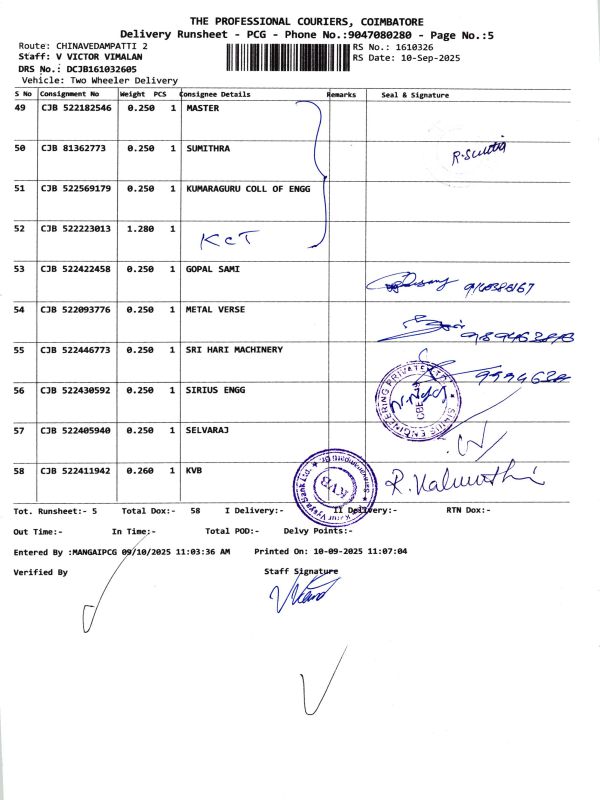 THE PROFESSIONAL COURIERS, COIMBATORE
Delivery Runsheet - PCG - Phone No.:9047080280 - Page No.:5
Route: CHINAVEDAMPATTI 2
RS No.: 1610326
Staff: V VICTOR VIMALAN
RS Date: 10-Sep-2025
DRS No.: DCJB161032605
Vehicle: Two Wheeler Delivery
S No Consignment No Weight PCS Consignee Details Remarks Seal & Signature
49 CJB 522182546 0.250 1 MASTER
50 CJB 81362773 0.250 1 SUMITHRA
51 CJB 522569179 0.250 1 KUMARAGURU COLL OF ENGG
52 CJB 522223013 1.280 1 KCT
53 CJB 522422458 0.250 1 GOPAL SAMI
54 CJB 522093776 0.250 1 METAL VERSE
55 CJB 522446773 0.250 1 SRI HARI MACHINERY
56 CJB 522430592 0.250 1 SIRIUS ENGG
57 CJB 522405940 0.250 1 SELVARAJ
58 CJB 522411942 0.260 1 KVB
Tot. Runsheet:- 5 Total Dox:- 58 I Delivery:- II Delivery:- RTN Dox:-
Out Time:- In Time:- Total POD:- Delvy Points:-
Entered By :MANGAIPCG 09/10/2025 11:03:36 AM Printed On: 10-09-2025 11:07:04
Verified By Staff Signature